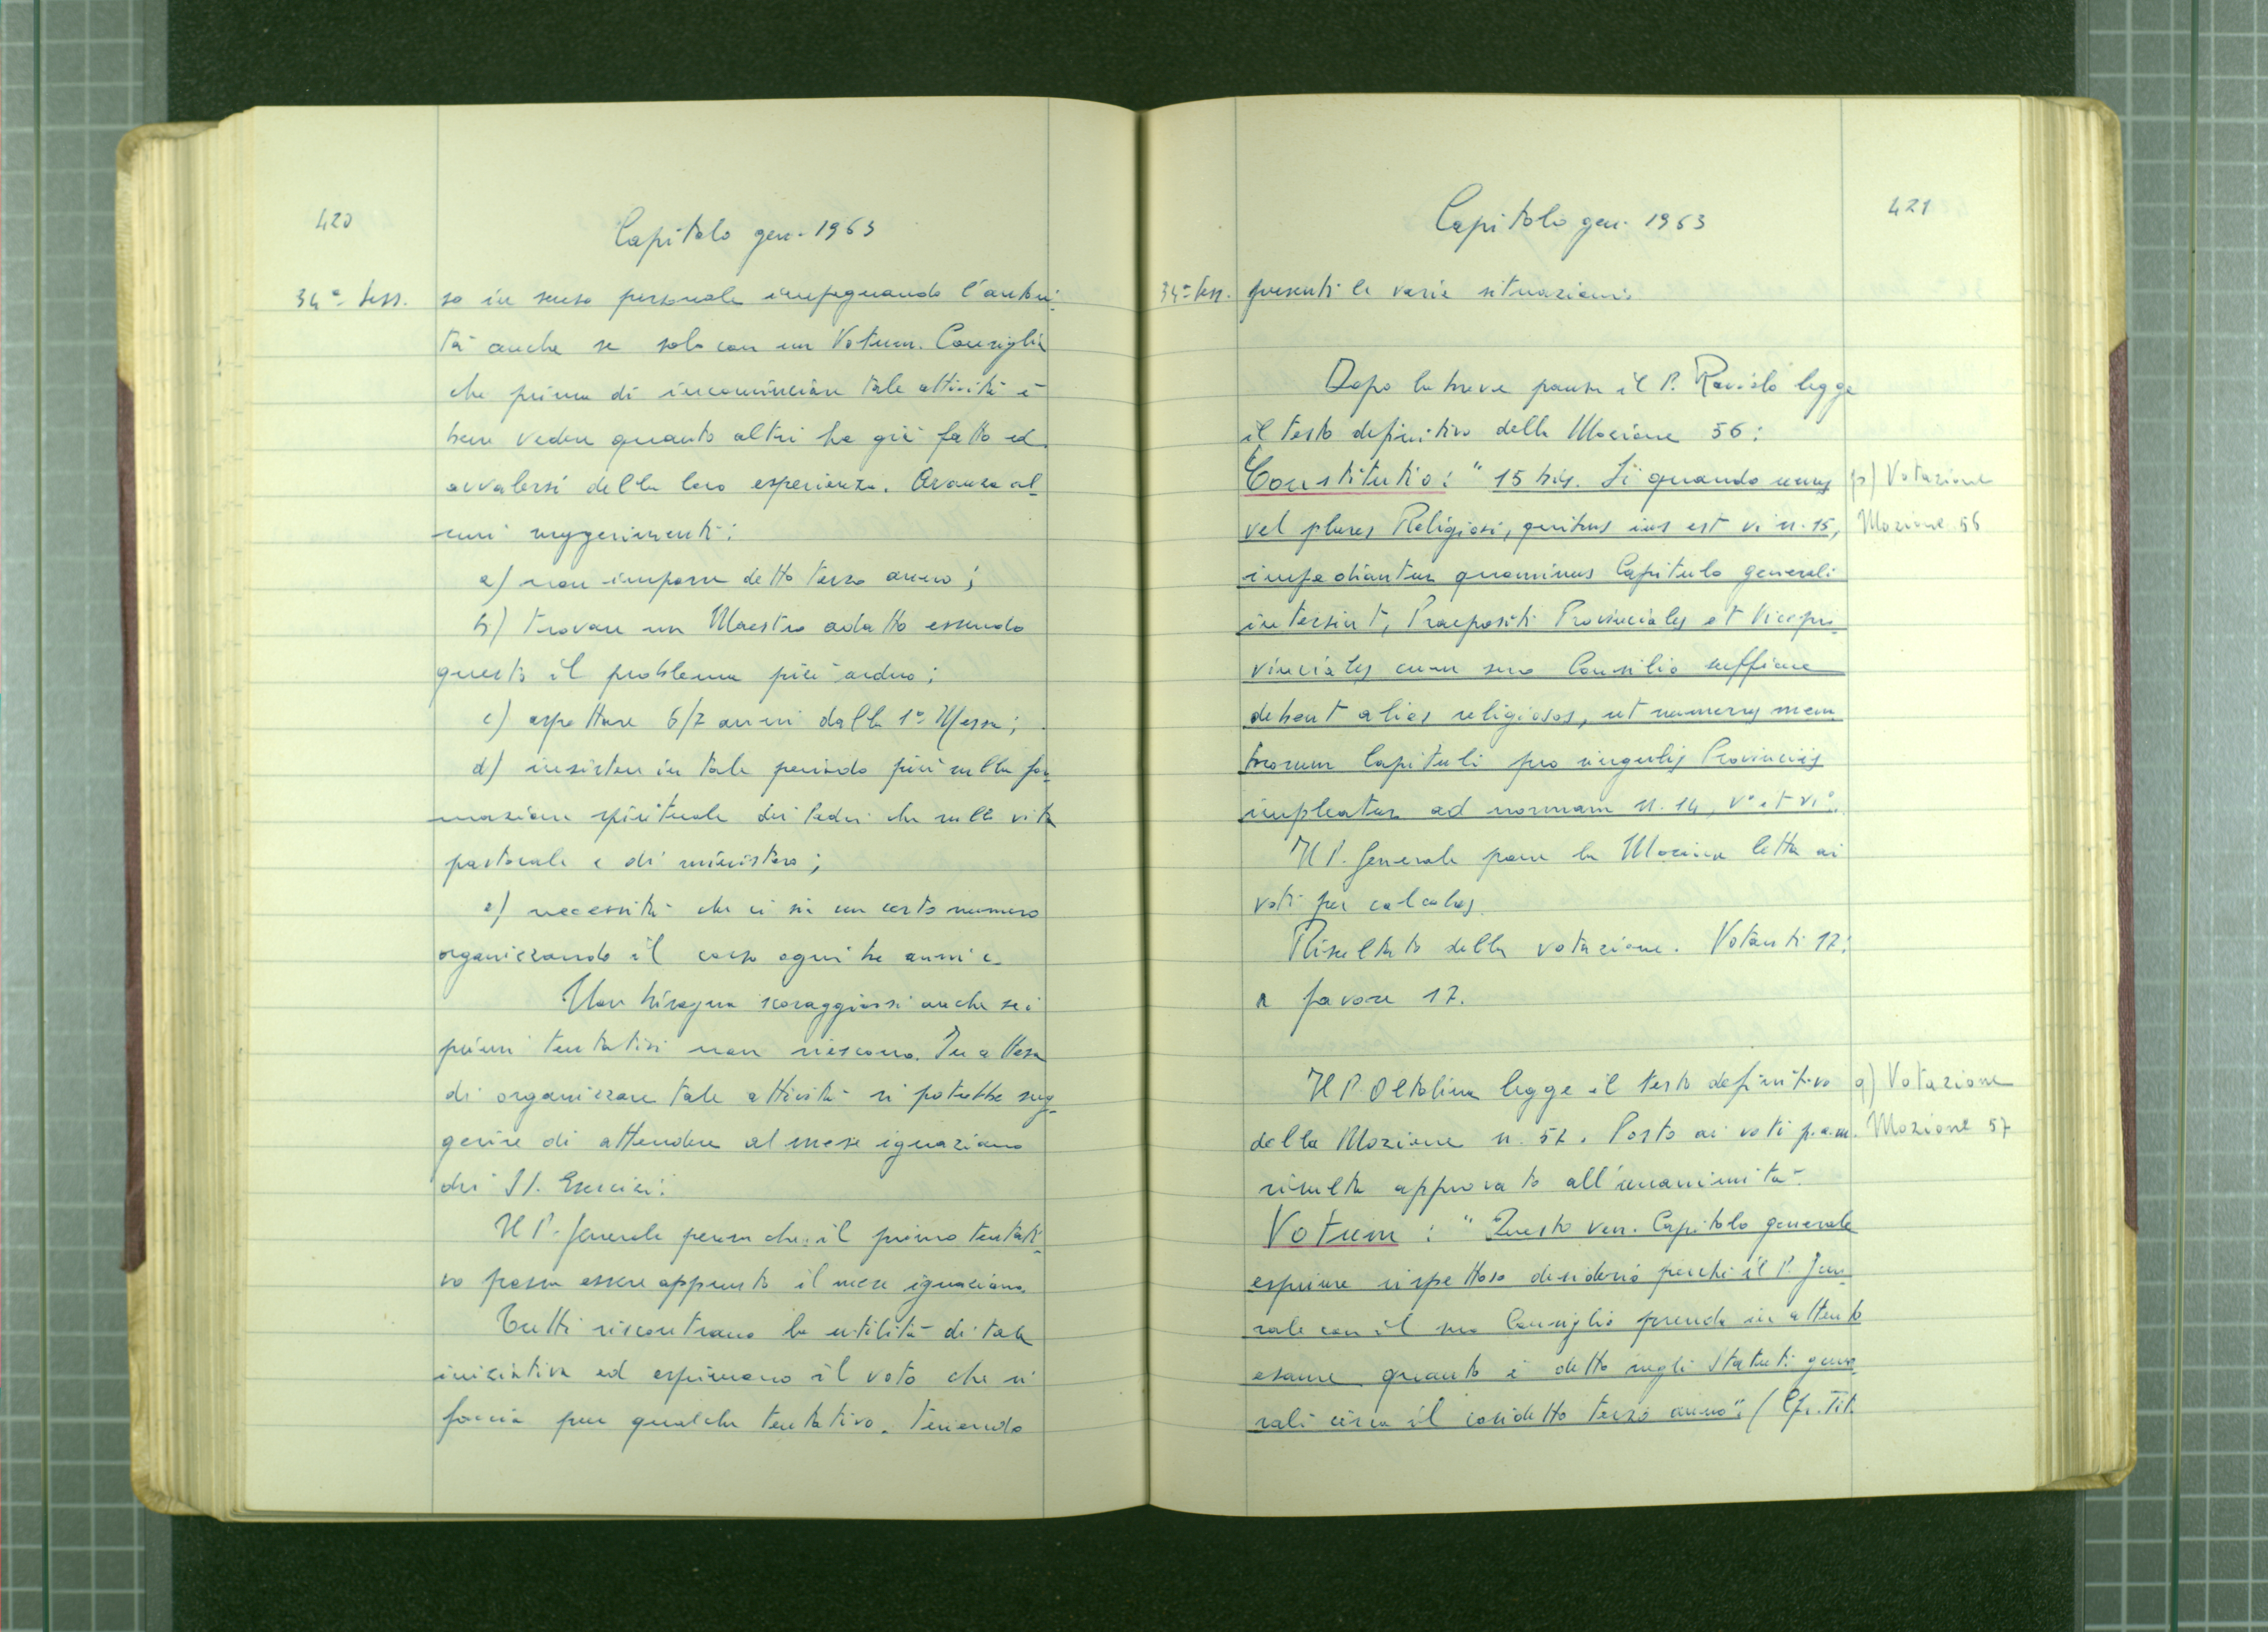 420
Capitolo gen. 1963
34ª Sess.
so in senso personale impegnando l'autori-
tà anche se solo con un Votum. Consiglia
che prima di incominciare tale attività è
bene vedere quanto altri ha già fatto ed
avvalersi della loro esperienza. Avanza al-
cuni suggerimenti:
a) non imporre detto terzo anno;
b) trovare un Maestro adatto essendo
questo il problema più arduo;
c) aspettare 6/7 anni dalla 1ª Messa;
d) insistere in tale periodo più sulla for-
mazione spirituale dei Padri che sulla vita
pastorale e di ministero;
e) necessità che ci sia un certo numero
organizzando il corso ogni tre anni c.
Non bisogna scoraggiarsi anche se i
primi tentativi non riescono. In attesa
di organizzare tale attività si potrebbe sug-
gerire di attendere al mese ignaziano
dei SS. Esercizi.
Il P. Generale pensa che il primo tentati-
vo possa essere appunto il mese ignaziano.
Tutti riscontrano la utilità di tale
iniziativa ed esprimono il voto che si
faccia pur qualche tentativo, tenendo
421
Capitolo gen. 1963
34ª Sess.
presenti le varie situazioni.
Dopo la breve pausa il P. Raviolo legge
il testo definitivo della Mozione 56:
Constitutio: "15 bis. Si quando unus
vel plures Religiosi, quibus ius est vi n. 15,
impediantur quominus Capitulo generali
intersint, Praepositi Provinciales et Vicepro-
vinciales cum suo Consilio sufficere
debent alios religiosos, ut numerus mem-
brorum Capituli pro singulis Provinciis
impleatur ad normam n. 14, V° et VI°.
p) Votazione
Mozione 56
Il P. Generale pone la Mozione letta ai
voti per calculos.
Risultato della votazione. Votanti 17;
a favore 17.
Il P. Oltolina legge il testo definitivo
della Mozione n. 57. Posto ai voti p.a.m.
risulta approvato all'unanimità.
q) Votazione
Mozione 57
Votum: "Questo ven. Capitolo generale
esprime rispettoso desiderio perché il P. Gene-
rale con il suo Consiglio prenda in attento
esame quanto è detto negli Statuti gene-
rali circa il cosidetto terzo anno". (Cfr. Tit.